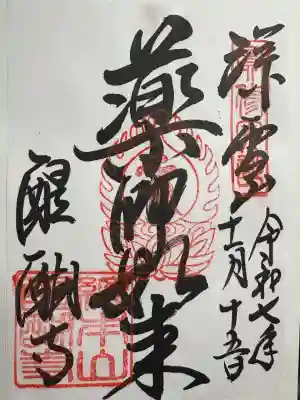 祥雲
令和七年
十一月十五日
薬師如来
醍醐寺